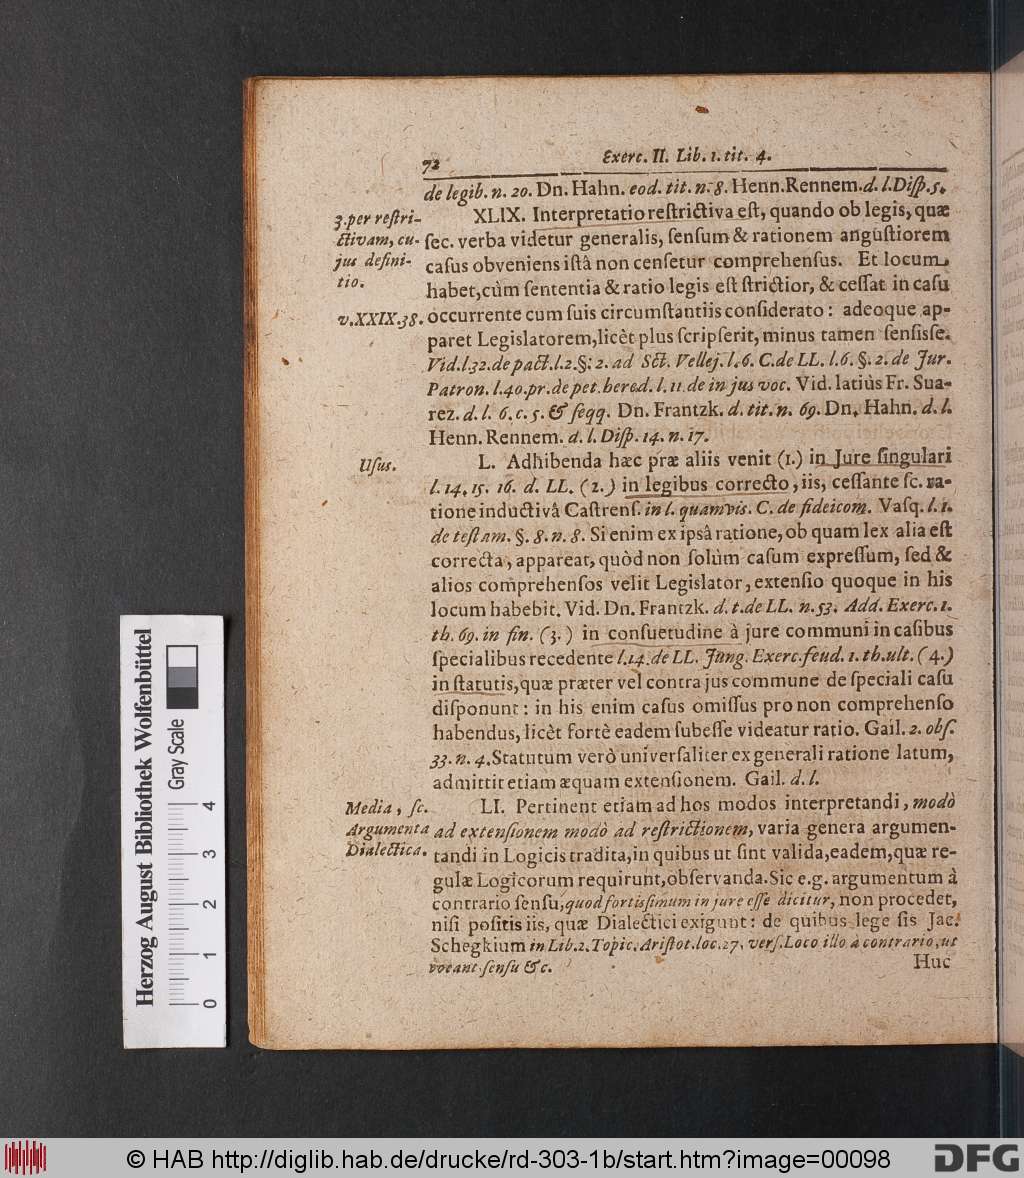 72
Exerc. II. Lib. 1. tit. 4.
de legib. n. 20. Dn. Hahn. eod. tit. n. 8. Henn. Rennem. d. l. Disp. 5.
3. per reſtri-
ctivam, cu-
jus defini-
tio.
v. XXIX. 38.
XLIX. Interpretatio reſtrictiva eſt, quando ob legis, quæ
ſec. verba videtur generalis, ſenſum & rationem anguſtiorem
caſus obveniens iſtâ non cenſetur comprehenſus. Et locum
habet, cùm ſententia & ratio legis eſt ſtrictior, & ceſſat in caſu
occurrente cum ſuis circumſtantiis conſiderato: adeoque ap-
paret Legislatorem, licèt plus ſcripſerit, minus tamen ſenſiſſe.
Vid. l. 32. de pact. l. 2. §. 2. ad Sct. Vellej. l. 6. C. de LL. l. 6. §. 2. de Jur.
Patron. l. 40. pr. de pet. hered. l. 11. de in jus voc. Vid. latiùs Fr. Sua-
rez. d. l. 6. c. 5. & ſeqq. Dn. Frantzk. d. tit. n. 69. Dn. Hahn. d. l.
Henn. Rennem. d. l. Diſp. 14. n. 17.
Uſus.
L. Adhibenda hæc præ aliis venit (1.) in Jure ſingulari
l. 14. 15. 16. d. LL. (2.) in legibus correcto, iis, ceſſante ſc. ra-
tione inductivâ Caſtrenſ. in l. quamvis. C. de fideicom. Vaſq. l. 1.
de teſtam. §. 8. n. 8. Si enim ex ipſâ ratione, ob quam lex alia eſt
correcta, appareat, quòd non ſolùm caſum expreſſum, ſed &
alios comprehenſos velit Legislator, extenſio quoque in his
locum habebit. Vid. Dn. Frantzk. d. t. de LL. n. 53. Add. Exerc. 1.
th. 69. in fin. (3.) in conſuetudine à jure communi in caſibus
ſpecialibus recedente l. 14. de LL. Jung. Exerc. feud. 1. th. ult. (4.)
in ſtatutis, quæ præter vel contra jus commune de ſpeciali caſu
diſponunt: in his enim caſus omiſſus pro non comprehenſo
habendus, licèt fortè eadem ſubeſſe videatur ratio. Gail. 2. obſ.
33. n. 4. Statutum verò univerſaliter ex generali ratione latum,
admittit etiam æquam extenſionem. Gail. d. l.
Media, ſc.
Argumenta
Dialectica.
LI. Pertinent etiam ad hos modos interpretandi, modò
ad extenſionem modò ad reſtrictionem, varia genera argumen-
tandi in Logicis tradita, in quibus ut ſint valida, eadem, quæ re-
gulæ Logicorum requirunt, obſervanda. Sic e. g. argumentum à
contrario ſenſu, quod fortisſimum in jure eſſe dicitur, non procedet,
niſi poſitis iis, quæ Dialectici exigunt: de quibus lege ſis Jac.
Schegkium in Lib. 2. Topic. Ariſtot. loc. 27. verſ. Loco illo à contrario, ut
vocant ſenſu &c.
Huc
Herzog August Bibliothek Wolfenbüttel
Gray Scale
0 1 2 3 4
© HAB http://diglib.hab.de/drucke/rd-303-1b/start.htm?image=00098
DFG